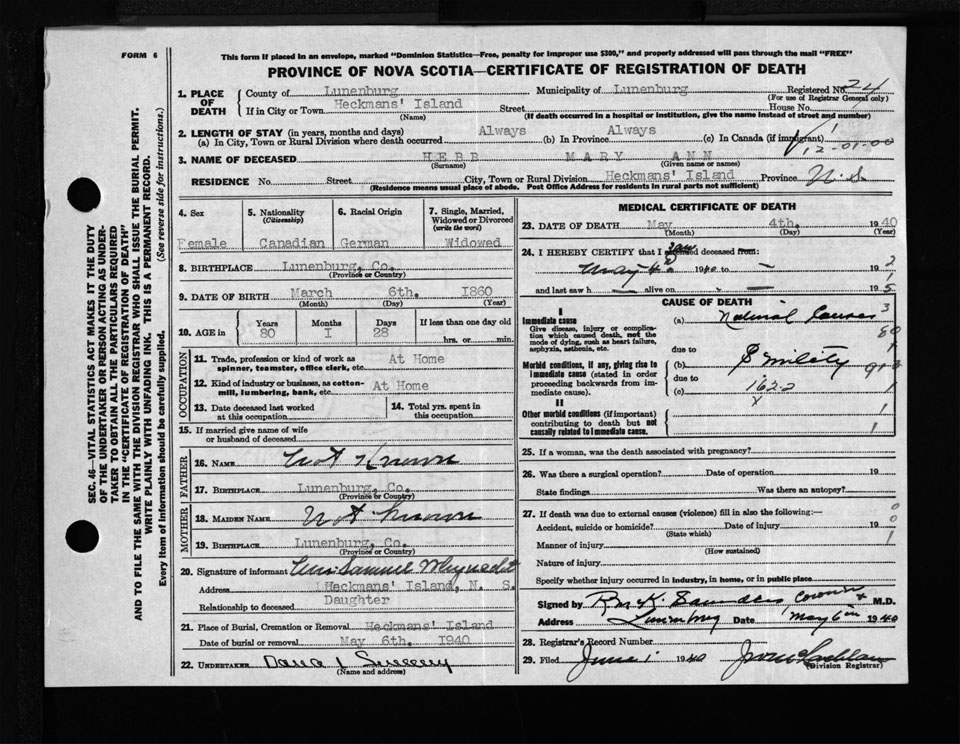 FORM 6
This form if placed in an envelope, marked "Dominion Statistics—Free, penalty for improper use $300," and properly addressed will pass through the mail "FREE"
PROVINCE OF NOVA SCOTIA—CERTIFICATE OF REGISTRATION OF DEATH
SEC. 46—VITAL STATISTICS ACT MAKES IT THE DUTY
OF THE UNDERTAKER OR PERSON ACTING AS UNDER-
TAKER TO OBTAIN ALL THE PARTICULARS REQUIRED
IN THE "CERTIFICATE OF REGISTRATION OF DEATH"
AND TO FILE THE SAME WITH THE DIVISION REGISTRAR WHO SHALL ISSUE THE BURIAL PERMIT.
WRITE PLAINLY WITH UNFADING INK. THIS IS A PERMANENT RECORD.
Every item of information should be carefully supplied. (See reverse side for instructions.)
1. PLACE OF DEATH
County of Lunenburg Municipality of Lunenburg Registered No. 24
(For use of Registrar General only)
If in City or Town Heckmans' Island Street House No.
(Name) (If death occurred in a hospital or institution, give the name instead of street and number)
2. LENGTH OF STAY (in years, months and days)
(a) In City, Town or Rural Division where death occurred Always (b) In Province Always (c) In Canada (if immigrant)
12-01-00
3. NAME OF DECEASED HEBB MARY ANN
(Surname) (Given name or names)
RESIDENCE No. Street City, Town or Rural Division Heckmans' Island Province N.S.
(Residence means usual place of abode. Post Office Address for residents in rural parts not sufficient)
4. Sex 5. Nationality (Citizenship) 6. Racial Origin 7. Single, Married, Widowed or Divorced (write the word)
Female Canadian German Widowed
8. BIRTHPLACE Lunenburg, Co.
(Province or Country)
9. DATE OF BIRTH March 6th. 1860
(Month) (Day) (Year)
10. AGE in Years Months Days If less than one day old
80 I 28 hrs. or min.
OCCUPATION
11. Trade, profession or kind of work as spinner, teamster, office clerk, etc. At Home
12. Kind of industry or business, as cotton-mill, lumbering, bank, etc. At Home
13. Date deceased last worked at this occupation
14. Total yrs. spent in this occupation
15. If married give name of wife or husband of deceased
FATHER
16. NAME Not Known
17. BIRTHPLACE Lunenburg, Co.
(Province or Country)
MOTHER
18. MAIDEN NAME Not known
19. BIRTHPLACE Lunenburg, Co.
(Province or Country)
20. Signature of informant Samuel
Address Heckmans' Island, N. S.
Relationship to deceased Daughter
21. Place of Burial, Cremation or Removal Heckmans' Island
Date of burial or removal May 6th. 1940
22. UNDERTAKER Dana Sweeny
(Name and address)
MEDICAL CERTIFICATE OF DEATH
23. DATE OF DEATH May 4th. 1940
(Month) (Day) (Year)
24. I HEREBY CERTIFY that I saw deceased from:
May 1940 to — 19
and last saw h — alive on — 19
CAUSE OF DEATH
I
Immediate cause (a) Natural Causes
Give disease, injury or complication which caused death, not the mode of dying, such as heart failure, asphyxia, asthenia, etc.
due to
(b) & senility
Morbid conditions, if any, giving rise to immediate cause (stated in order proceeding backwards from immediate cause).
due to
(c) 162-2
II
Other morbid conditions (if important) contributing to death but not causally related to immediate cause.
25. If a woman, was the death associated with pregnancy?
26. Was there a surgical operation? Date of operation 19
State findings Was there an autopsy?
27. If death was due to external causes (violence) fill in also the following:—
Accident, suicide or homicide? Date of injury 19
(State which)
Manner of injury
(How sustained)
Nature of injury
Specify whether injury occurred in industry, in home, or in public place
Signed by R. McK. Saunders Coroner M.D.
Address Lunenburg Date May 6th 1940
28. Registrar's Record Number
29. Filed June 1 1940
(Division Registrar)